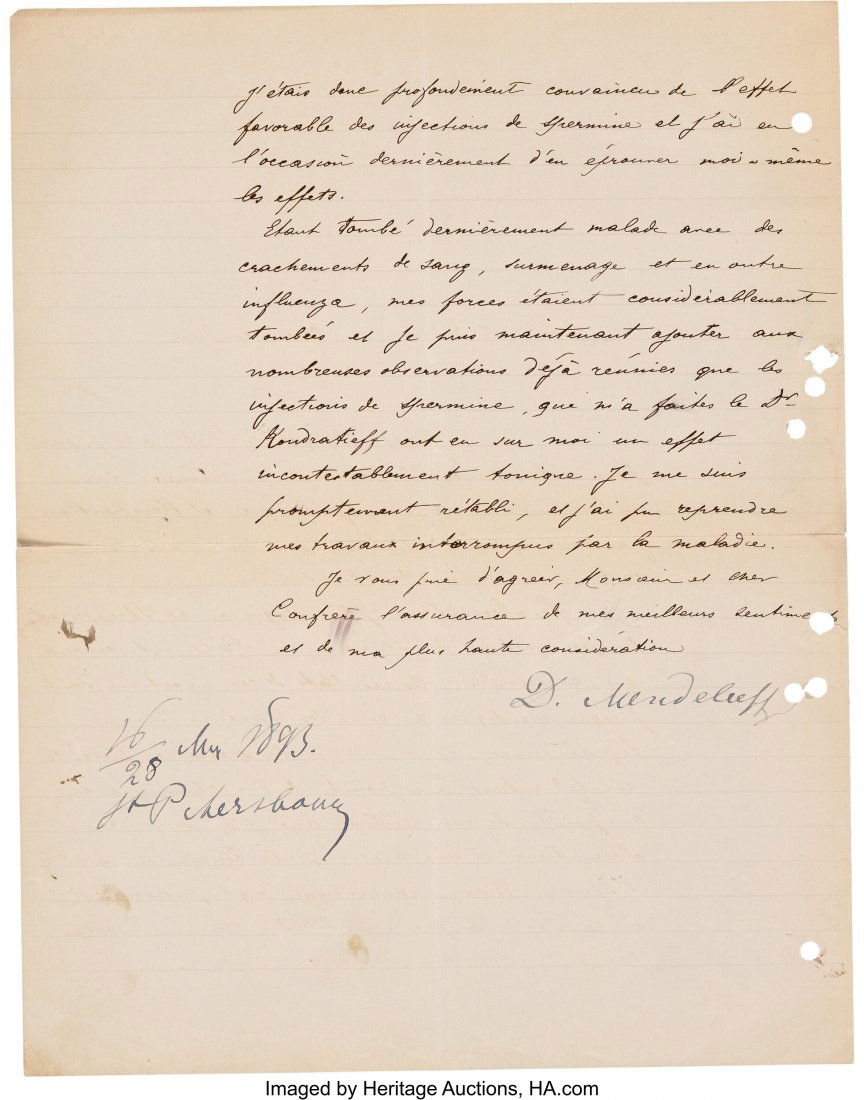 j'étais donc profondément convaincu de l'effet
favorable des injections de spermine et j'ai eu
l'occasion dernièrement d'en éprouver moi-même
les effets.
Etant tombé dernièrement malade avec des
crachements de sang, surmenage et en outre
influenza, mes forces étaient considérablement
tombées et je puis maintenant ajouter aux
nombreuses observations déjà réunies que les
injections de spermine, que m'a faites le Dr
Kondratieff ont eu sur moi un effet
incontestablement tonique. Je me suis
promptement rétabli, et j'ai pu reprendre
mes travaux interrompus par la maladie.
Je vous prie d'agréer, Monsieur et cher
Confrère l'assurance de mes meilleurs sentiments
et de ma plus haute considération
D. Mendeleeff
16/28 1893.
St Petersbourg
Imaged by Heritage Auctions, HA.com